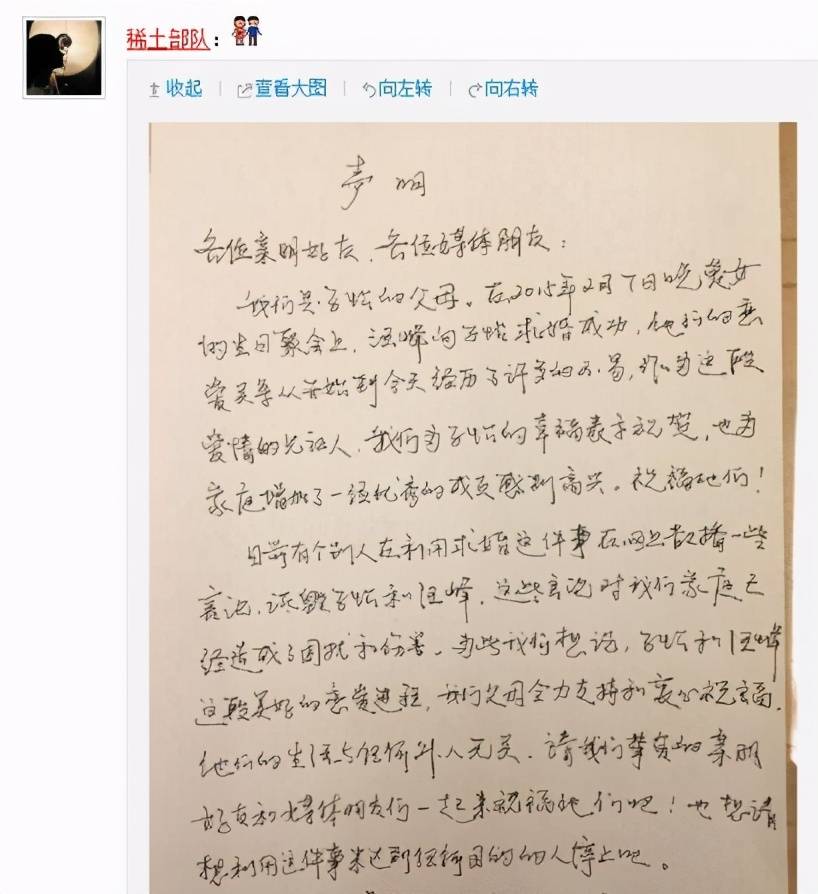 稀土部队：
收起 查看大图 向左转 向右转
声明
各位亲朋好友、各位媒体朋友：
我们是子怡的父母。在2015年2月7日晚爱女
的生日聚会上，汪峰向子怡求婚成功，他们的恋
爱关系从开始到今天经历了许多的不易，作为这段
爱情的见证人，我们为子怡的幸福表示祝贺，也为
家庭增加了一位优秀的成员感到高兴。祝福他们！
目前有个别人在利用求婚这件事在网上散播一些
言论，诋毁子怡和汪峰，这些言论对我们家庭已
经造成了困扰和伤害。为此我们想说，子怡和汪峰
这段美好的恋爱进程，我们父母全力支持和衷心祝福，
他们的生活与任何外人无关，请我们挚爱的亲朋
好友和媒体朋友们一起来祝福他们吧！也想请
想利用这件事来达到任何目的的人停止吧。